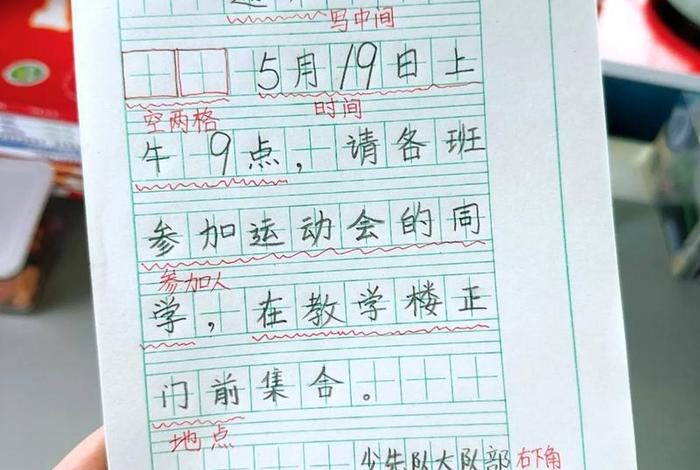 写中间
5月19日上
空两格 时间
午9点，请各班
参加运动会的同
参加人
学，在教学楼正
门前集合。
地点
少先队大队部 右下角